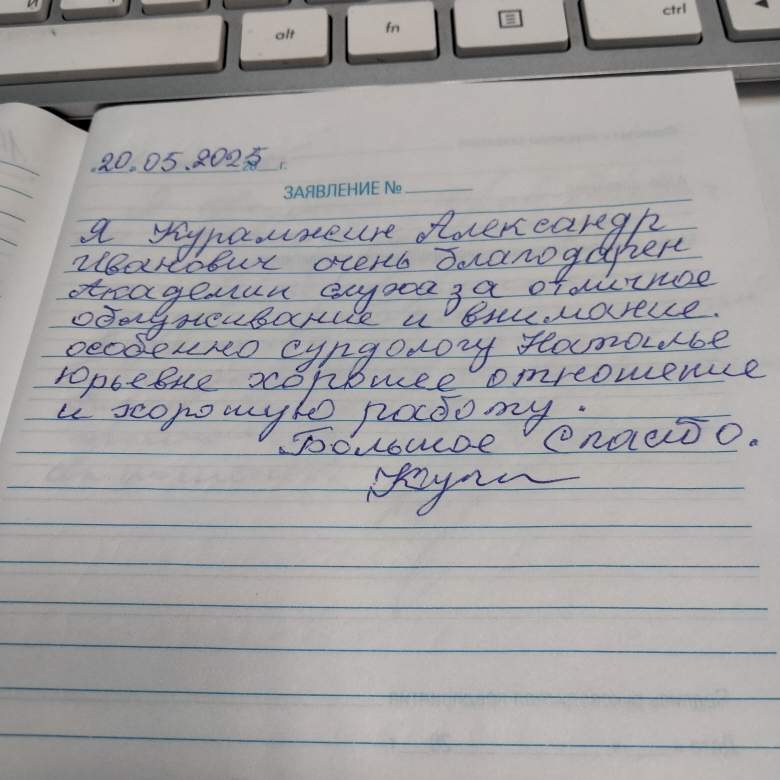 alt
fn
ctrl
.20.05.2025 г.
ЗАЯВЛЕНИЕ №
Я Курамжин Александр
Иванович очень благодарен
Академии слуха за отличное
облуживание и внимание.
особенно сурдологу Наталье
Юрьевне хорошее отношение
и хорошую работу.
Большое Спасибо.